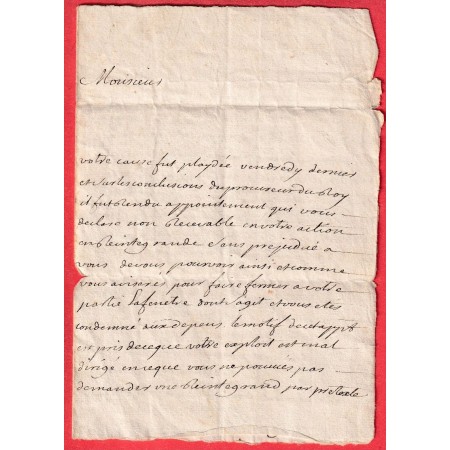 Monsieur
votre cause fut playdée vendredy dernier
et sur les conclusions du procureur du Roy
il fut Rendu appointement qui vous
declare non Recevable en votre action
en Reintegrande sans prejudice a
vous de vous pourvoir ainsi et comme
vous aviserés pour faire fermer a votre
partie la fenetre dont sagit et vous etes
condemné aux depens le motif de cet appt
est pris de ce que votre exploit est mal
dirigé en ce que vous ne pouviés pas
demander une Reintegrand par